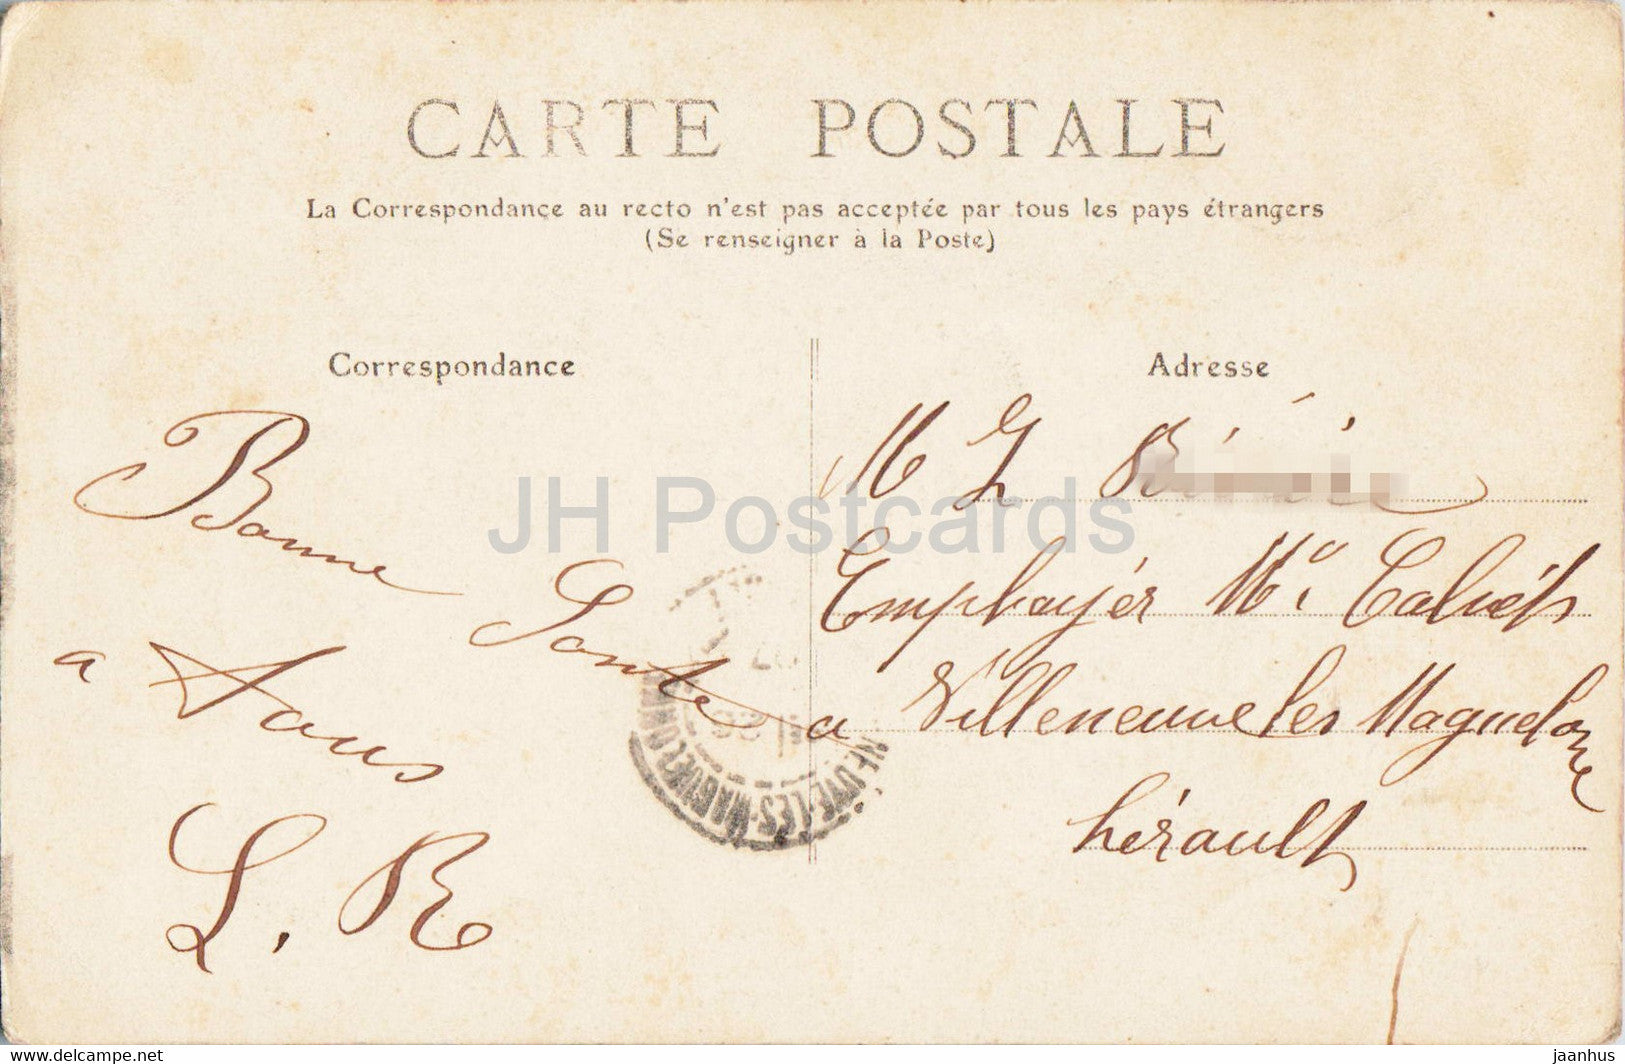 CARTE POSTALE
La Correspondance au recto n'est pas acceptée par tous les pays étrangers
(Se renseigner à la Poste)
Correspondance
Adresse
Bonne Sante
a tous
L. R
M L
Employér Mo
a Villeneuve les Maguelone
hérault
NEUVE-LES-MAGUELONE
JH Postcards
www.delcampe.net
jaanhus